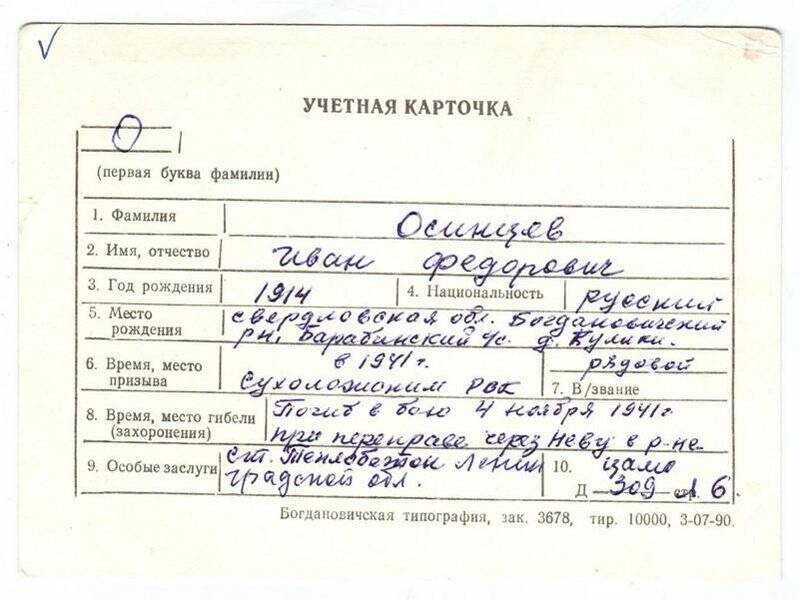 V
УЧЕТНАЯ КАРТОЧКА
О
(первая буква фамилии)
1. Фамилия Осинцев
2. Имя, отчество Иван Федорович
3. Год рождения 1914 4. Национальность русский
5. Место рождения свердловская обл. Богдановичский
рн, Барабинский с/с. д. Кулики.
6. Время, место призыва в 1941 г.
Сухоложским РВК
рядовой
7. В/звание
8. Время, место гибели (захоронения) Погиб в бою 4 ноября 1941г
при переправе через Неву в р-не
9. Особые заслуги ст. Теплобетон Ленин
градской обл.
10. цамо
Д 309 стр. л 6.
Богдановичская типография, зак. 3678, тир. 10000, 3-07-90.